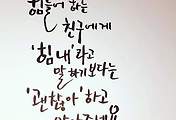 힘들어 하는
친구에게
'힘내'라고
말하기보다는
'괜찮아'하고
안아주세요